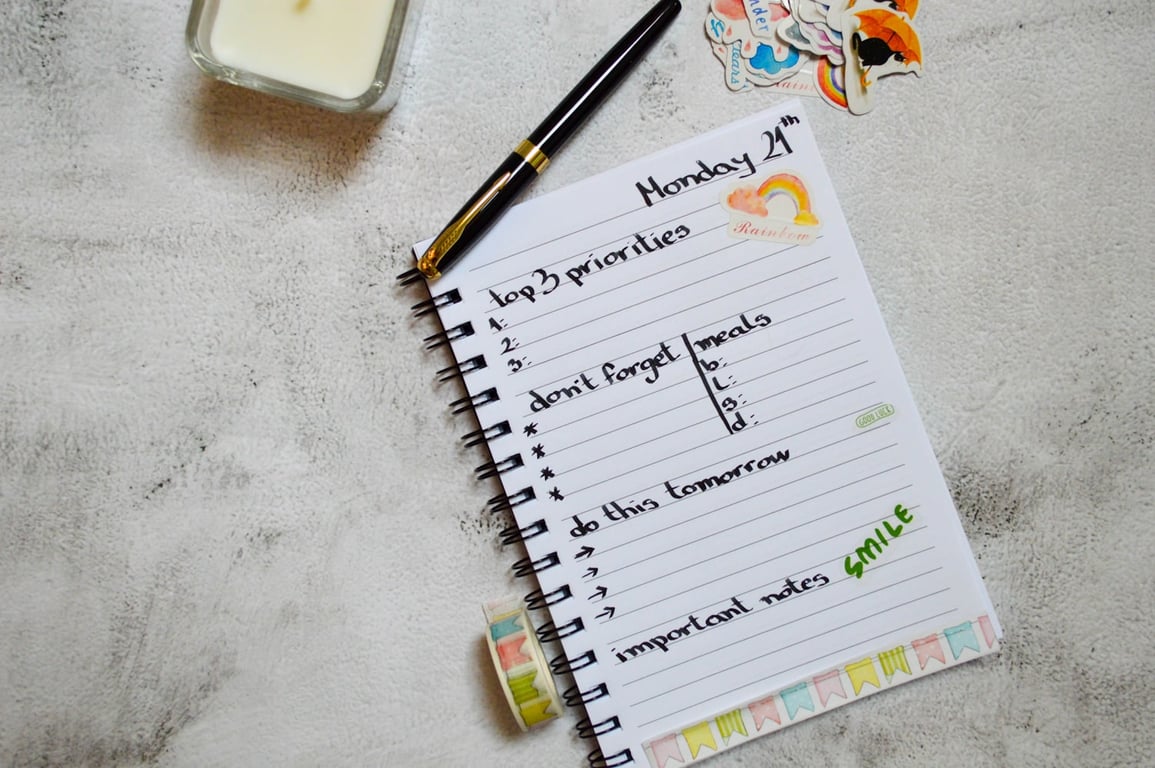 Monday 21th
Rainbow
top 3 priorities
1:-
2:-
3:-
don't forget
*
*
*
*
meals
b:-
L:-
s:-
d:-
GOOD LUCK
do this tomorrow
→
→
→
→
important notes
SMILE